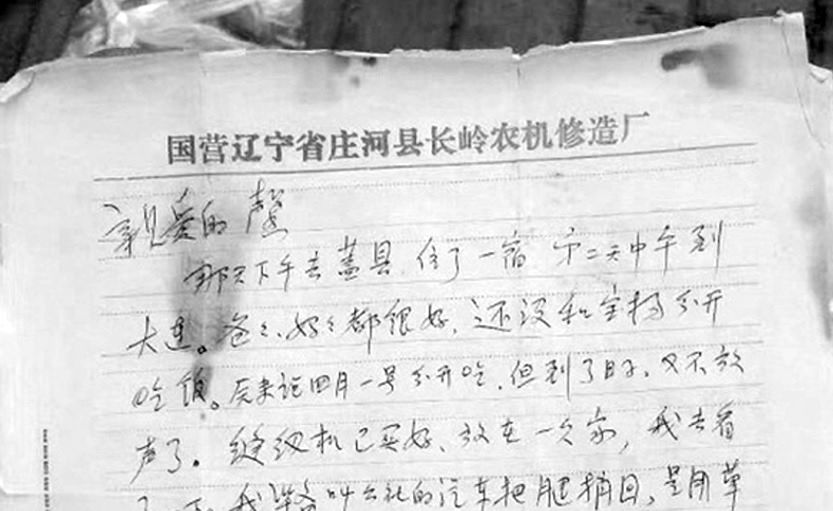 国营辽宁省庄河县长岭农机修造厂
亲爱的馨
那天下午去盖县,住了一宿 第二天中午到
大连。爸爸、妈妈都很好,还没和宝杨分开
吃饭。原来说四月一号分开吃,但到了日子,又不放
声了。缝纫机已买好、放在一久家,我去看
我准备叫公社的汽车把腿捎回,是用草